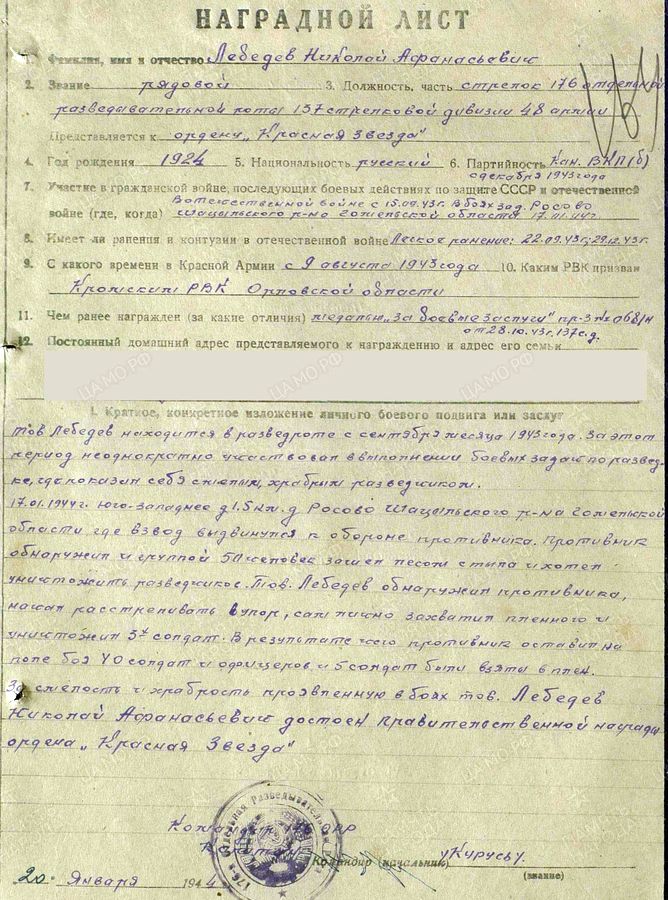 НАГРАДНОЙ ЛИСТ
1. Фамилия, имя и отчество Лебедев Николай Афанасьевич
2. Звание рядовой 3. Должность, часть стрелок 176 отдельной
разведывательной роты 137 стрелковой дивизии 48 армии
Представляется к ордену „Красная Звезда"
4. Год рождения 1924 5. Национальность русский 6. Партийность Кан. ВКП(б)
с декабря 1943 года
7. Участие в гражданской войне, последующих боевых действиях по защите СССР и отечественной
В отечественной войне с 15.09.43г. В боях зад. Росово
войне (где, когда) Шацильского р-на Гомельской области 17.01.44г.
8. Имеет ли ранения и контузии в отечественной войне Легкое ранение: 22.09.43г; 29.12.43г.
9. С какого времени в Красной Армии с 9 августа 1943 года 10. Каким РВК призван
Кромским РВК Орловской области
11. Чем ранее награжден (за какие отличия) медалью „За боевые заслуги" пр-з № 068/н
от 28.10.43г, 137 с.д.
12. Постоянный домашний адрес представляемого к награждению и адрес его семьи
ЦАМО.РФ ЦАМО.РФ ЦАМО.РФ
I. Краткое, конкретное изложение личного боевого подвига или заслуг
тов Лебедев находится в разведроте с сентября месяца 1943 года. За этот
период неоднократно участвовал в выполнении боевых задач по развед-
ке, где показал себя смелым, храбрым разведчиком.
17.01.1944г. юго-западнее д 1.5 км. д Росово Шацильского р-на Гомельской
области где взвод выдвинулся к обороне противника. Противник
обнаружил и группой 50 человек зашел лесом с тыла и хотел
уничтожить разведчиков. Тов. Лебедев обнаружил противника,
начал расстреливать в упор, сам лично захватил пленного и
уничтожил 5х солдат. В результате чего противник оставил на
поле боя 40 солдат и офицеров и 5 солдат были взяты в плен.
За смелость и храбрость проявленную в боях тов. Лебедев
Николай Афанасьевич достоен правительственной награды
ордена „Красная Звезда"
Командир 176 ОРР
Капитан
Командир (начальник) /Курусь/.
(звание)
176-я Отдельная Разведывательная
20 Января 1944